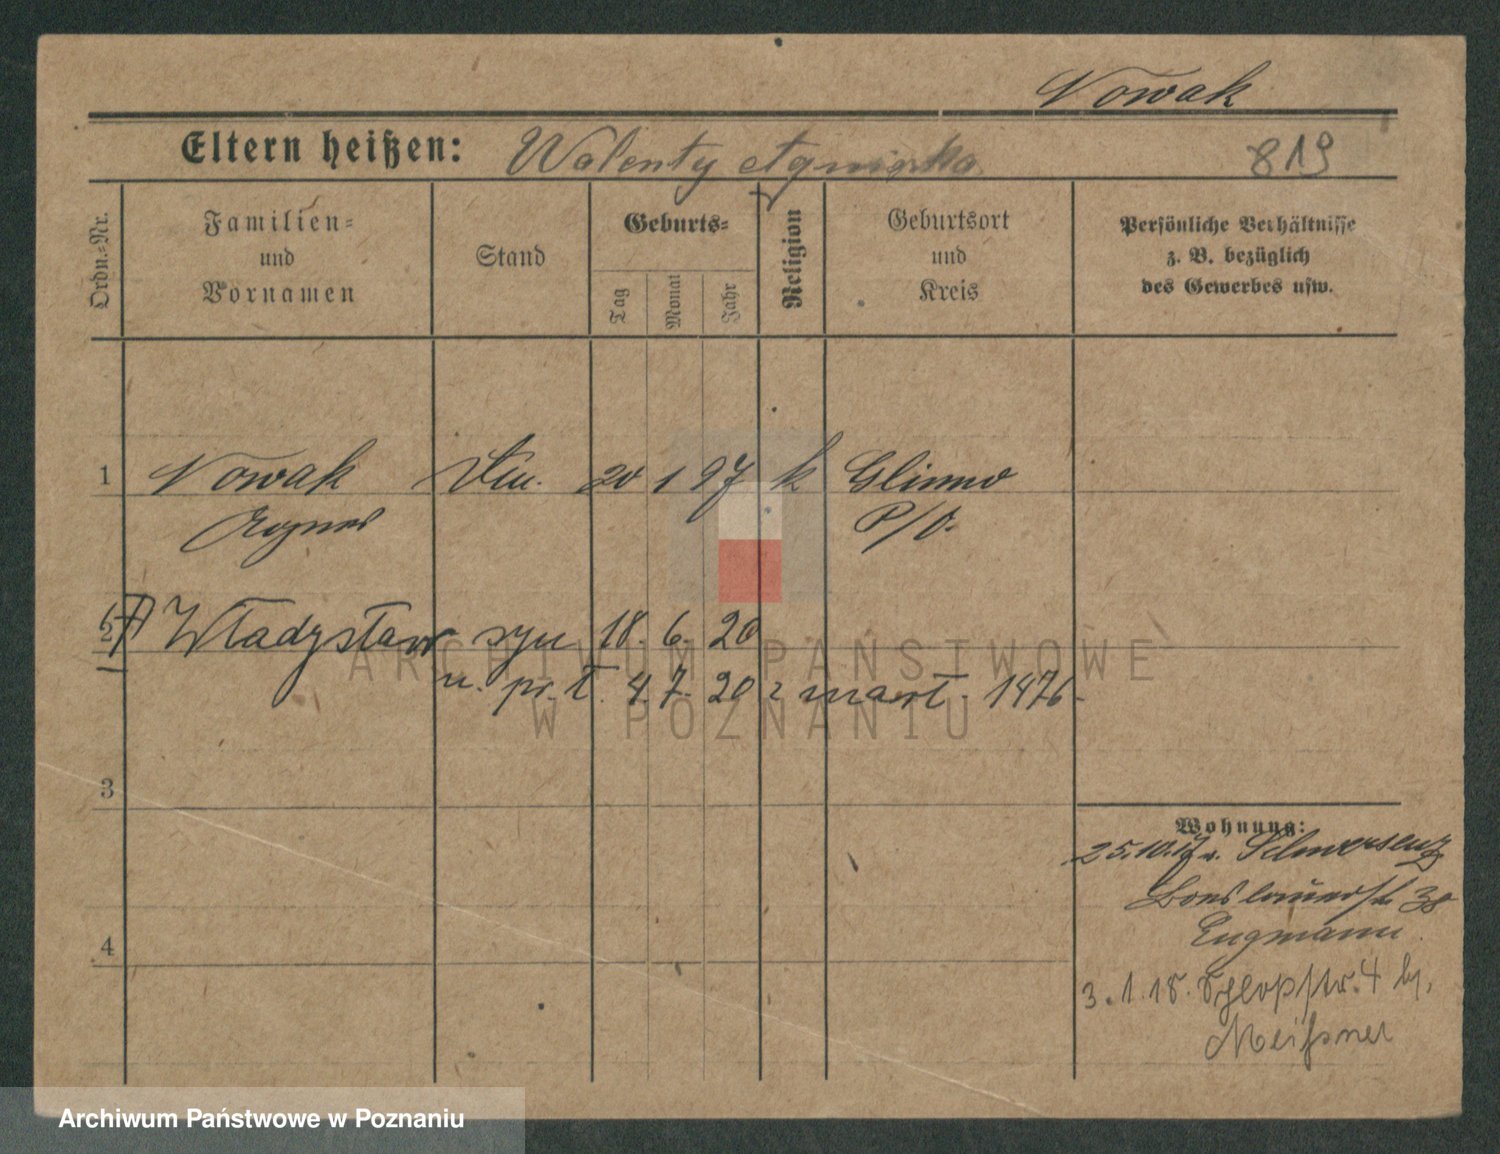 Nowak
Eltern heißen: Walenty Agnieszka 819
Ordn.-Nr.
Familien- und Vornamen
Stand
Geburts-
Tag
Monat
Jahr
Religion
Geburtsort und Kreis
Persönliche Verhältnisse z. B. bezüglich des Gewerbes usw.
1 Nowak 20 1 97 k Glinno
Agnes P/O.
2 Władysław syn 18. 6. 20
4. 7. 20 1476.
3
Wohnung:
25.10.17 v. Schwersenz
38
Engmann
4
3.1.18. Schloßstr. 4 bj.
Meißner
ARCHIWUM PAŃSTWOWE
W POZNANIU
Archiwum Państwowe w Poznaniu